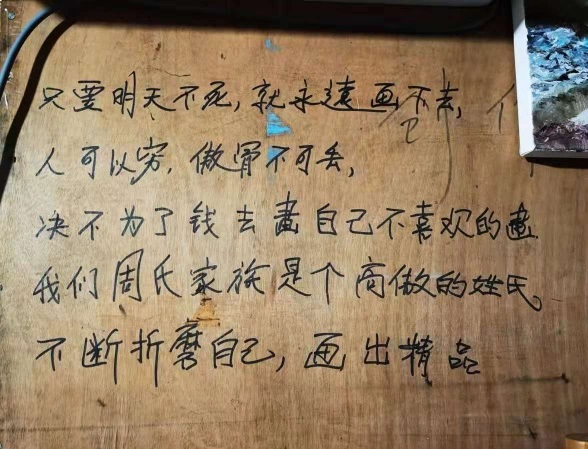 只要明天不死，就永遠画下去，
人可以穷，傲骨不可丢，
决不为了钱去畫自己不喜欢的畫
我们周氏家族是个高傲的姓氏，
不断折磨自己，画出精品